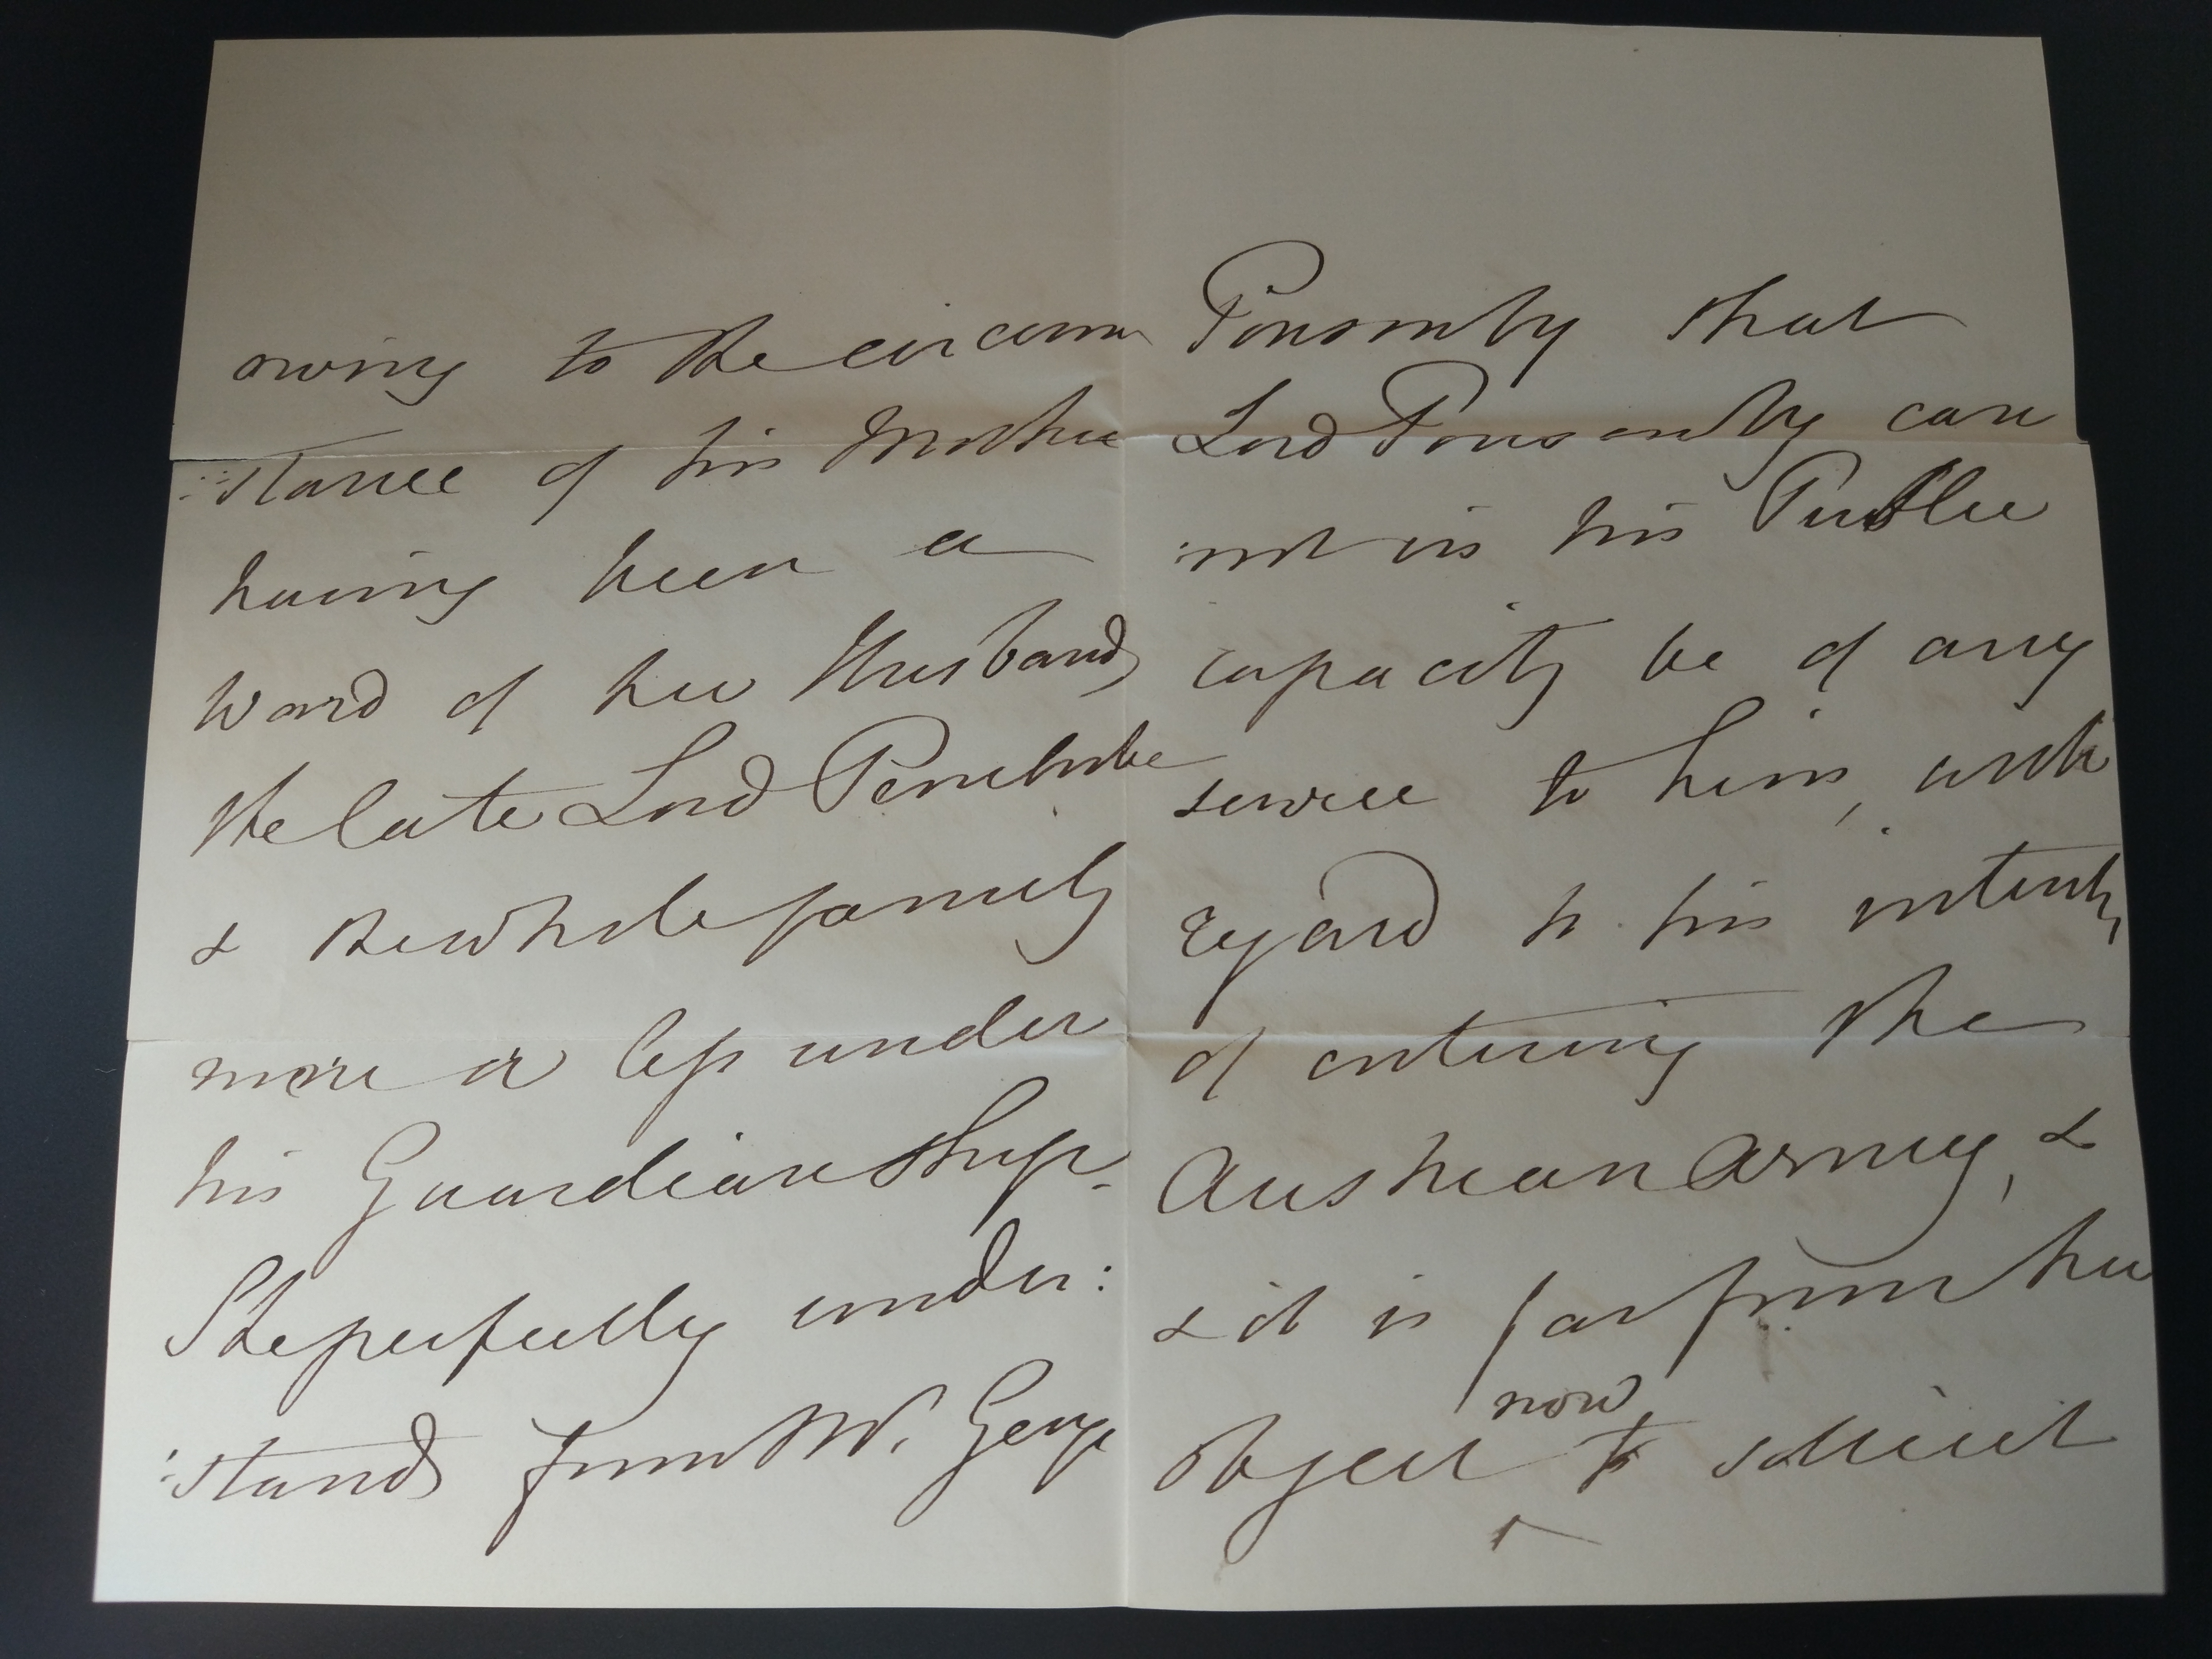 owing to the circum
:stance of his Mother
having been a
Ward of her Husband,
the late Lord Pembroke
& the whole family
more or less under
his Guardianship.
She perfectly under:
:stands from Mr. George
Ponsonby that
Lord Ponsonby can
:not in his Public
capacity be of any
service to him, with
regard to his intention,
of entering the
Austrian Army, &
& it is far from her
object now to solicit